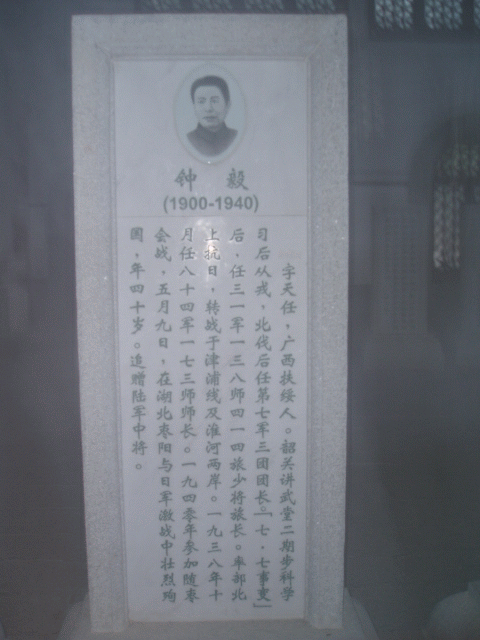 钟 毅
(1900-1940)
字天任，广西扶绥人。韶关讲武堂二期步科学
习后从戎，北伐后任第七军三团团长。「七·七事变」
后，任三一军一三八师四一四旅少将旅长。率部北
上抗日，转战于津浦线及淮河两岸。一九三八年十
月任八十四军一七三师师长。一九四零年参加随枣
会战，五月九日，在湖北枣阳与日军激战中壮烈殉
国，年四十岁。追赠陆军中将。